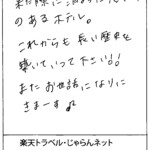 のあるホテル。
これからも長い歴史を
築いていって下さい!!
またお世話になりに
きまーす♪
楽天トラベル・じゃらんネット